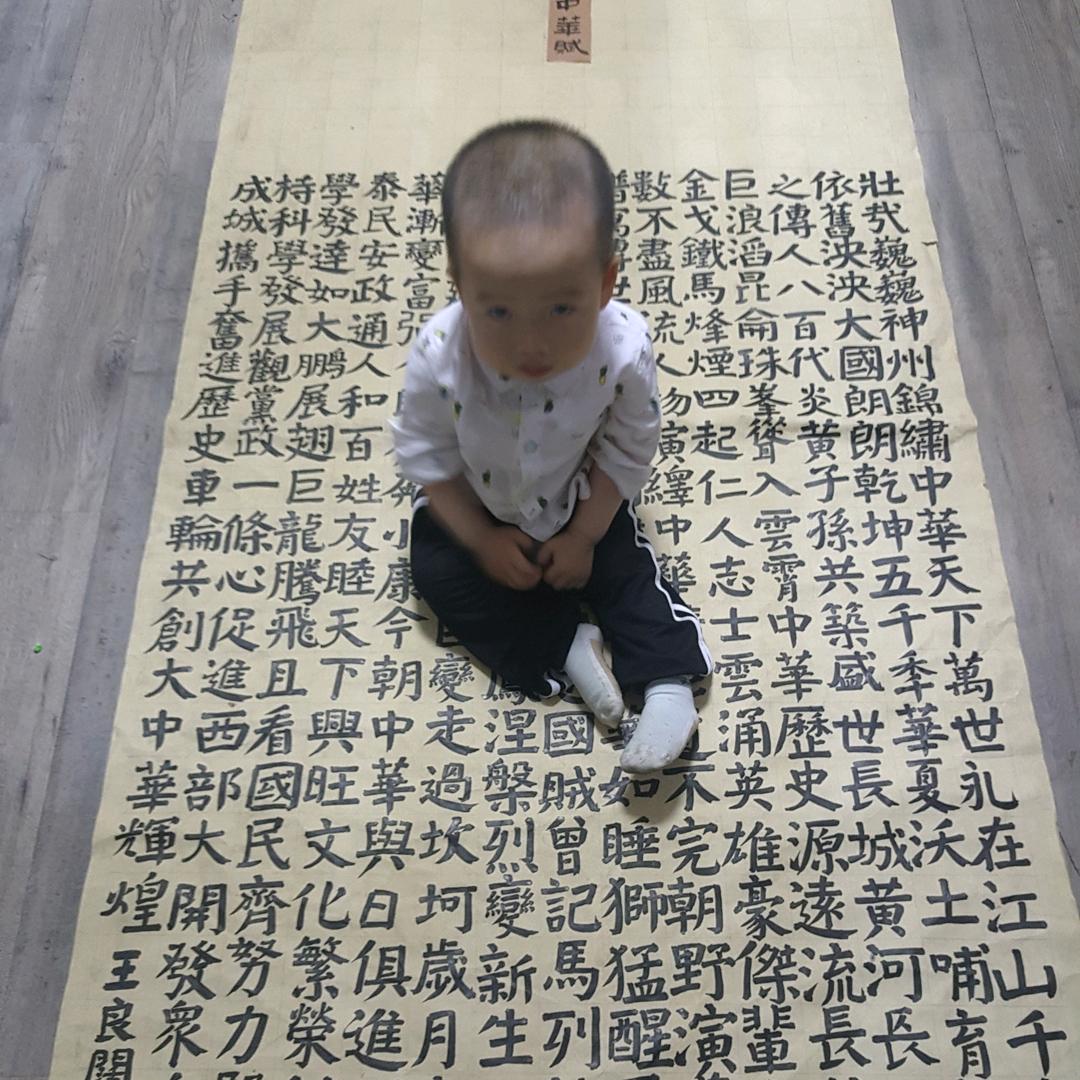 中華賦
壯哉巍巍神州錦繡中華天下萬世永在江山千
依舊泱泱大國朗朗乾坤五千秊華夏沃土哺育
之傳人八百代炎黃子孫共築盛世長城黃河長
巨浪滔昆侖珠峯聳入雲霄中華歷史源遠流長
金戈鐵馬烽煙四起仁人志士雲涌英雄豪傑輩
數不盡風流人物演繹中華不完朝野演
譜世如睡獅猛醒
國賊曾記馬列
涅槃烈變新生
變走過坎坷歲月
華漸變富强小康今朝中華與日俱進
泰民安政通人和百姓友睦天下興旺文化繁榮
學發達如大鵬展翅巨龍騰飛且看國民齊努力
持科學發展觀黨政一條心促進西部大開發眾
成城攜手奮進歷史車輪共創大中華輝煌
王良